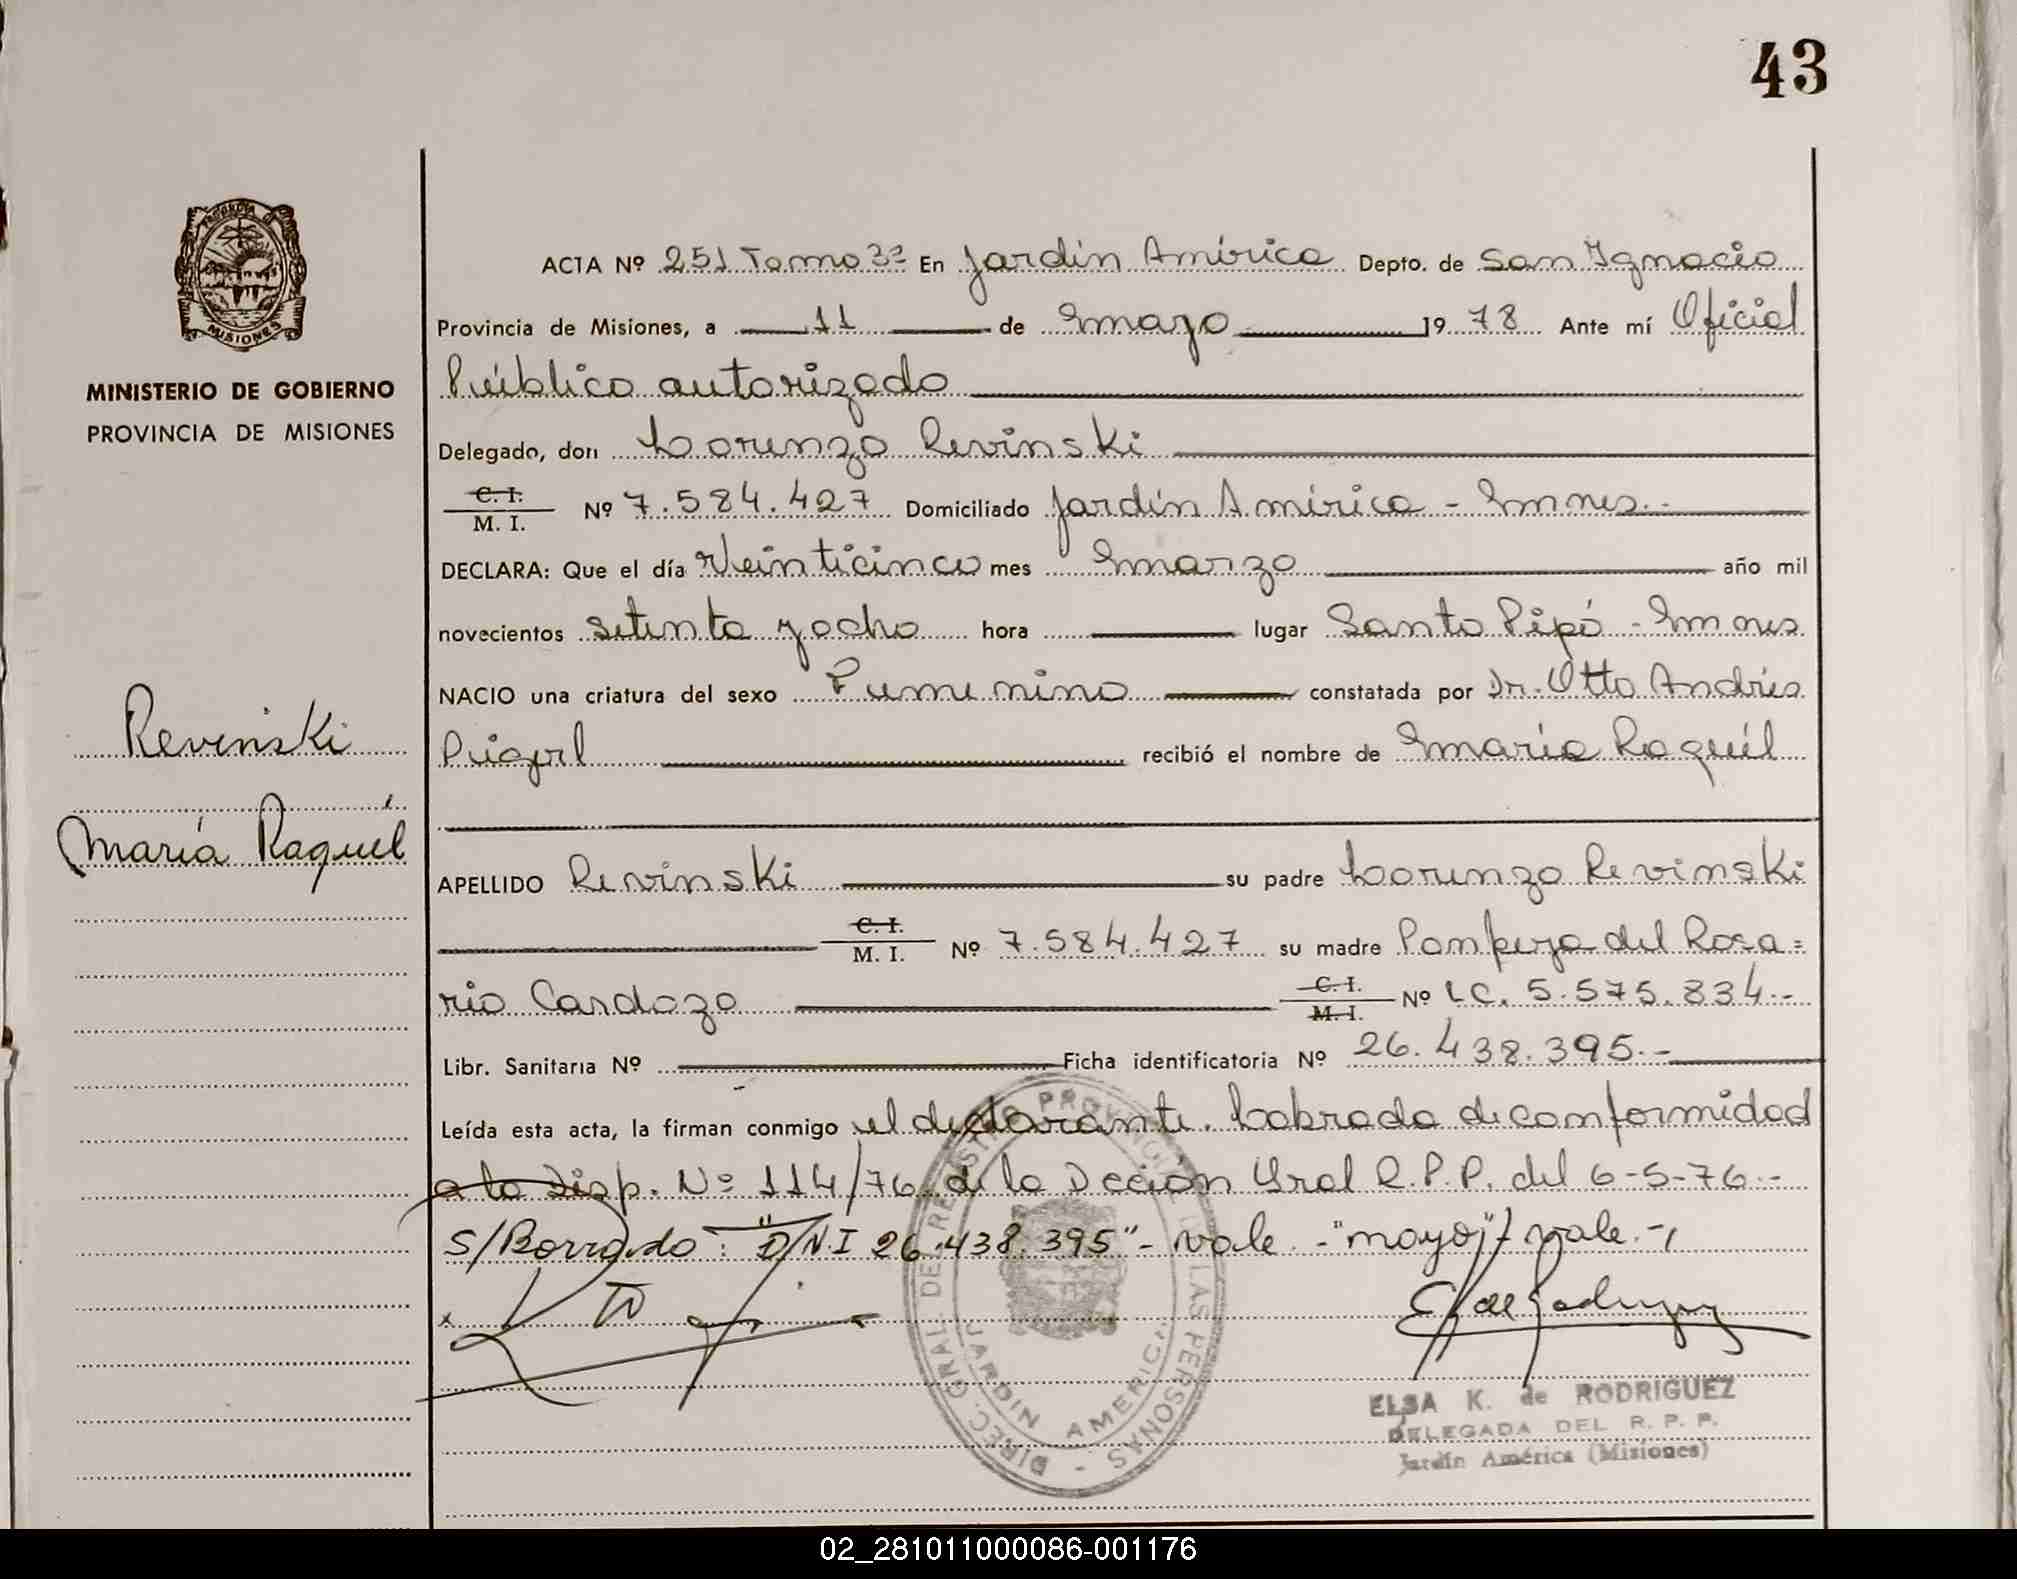 43
PROVINCIA DE
MISIONES
MINISTERIO DE GOBIERNO
PROVINCIA DE MISIONES
Revinski
María Raquél
ACTA Nº 251 Tomo 3º En Jardín América Depto. de San Ignacio
Provincia de Misiones, a 11 de mayo 1978 Ante mí Oficial
Público autorizado
Delegado, don Lorenzo Revinski
C. I.
M. I. Nº 7.584.427 Domiciliado Jardín América - Mnes.-
DECLARA: Que el día Veinticinco mes Marzo año mil
novecientos setenta y ocho hora lugar Santo Pipó - Mnes
NACIO una criatura del sexo Femenino constatada por Dr. Otto Andrés
recibió el nombre de María Raquél
APELLIDO Revinski su padre Lorenzo Revinski
C. I.
M. I. Nº 7.584.427 su madre Pompeya del Rosa=
rio Cardozo C. I. M. I. Nº LC. 5.575.834.-
Libr. Sanitaria Nº Ficha identificatoria Nº 26.438.395.-
Leída esta acta, la firman conmigo el declarante. Labrada de conformidad
a la Disp. Nº 114/76 de la Dcción Gral R.P.P. del 6-5-76.-
S/Borrado: "DNI 26.438.395"- vale - "mayo" vale.-
DIREC. GRAL. DE REGISTRO PROVINCIAL DE LAS PERSONAS -
JARDIN AMERICA
ELSA K. de RODRIGUEZ
DELEGADA DEL R. P. P.
Jardín América (Misiones)
02_281011000086-001176